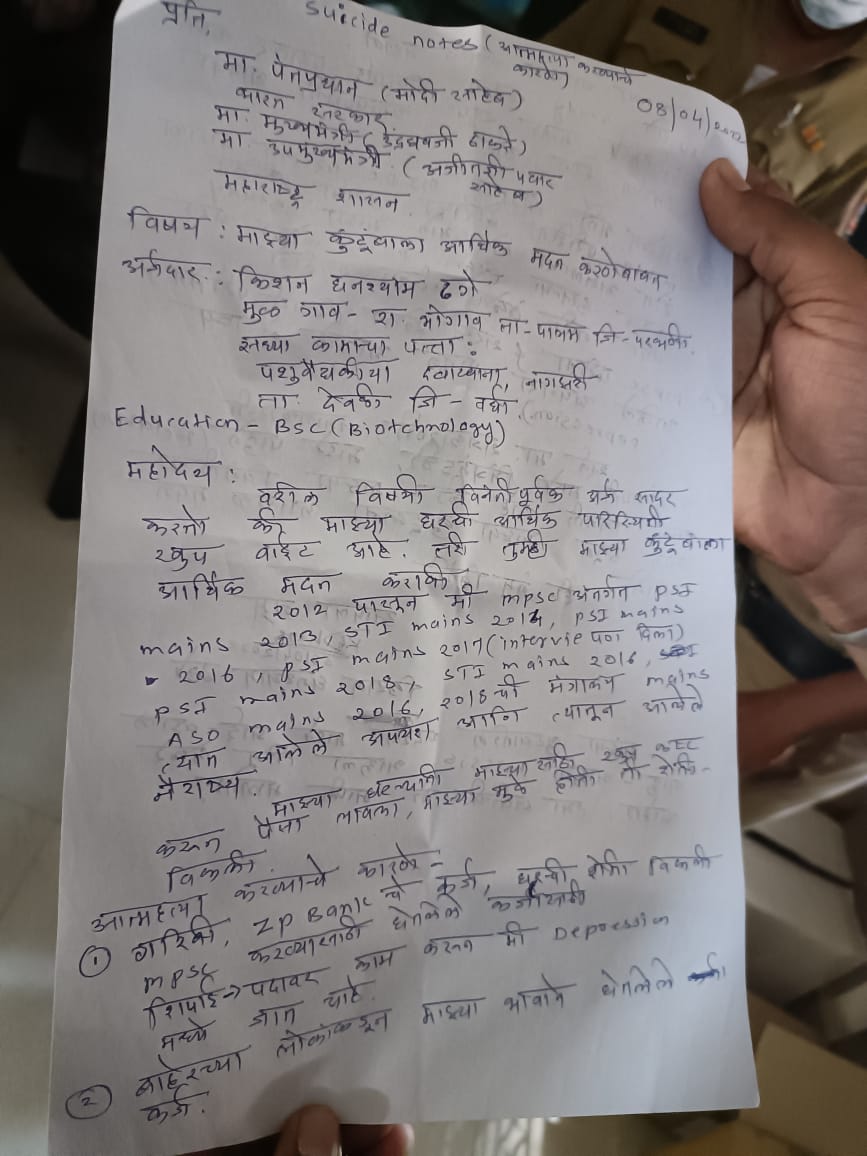 प्रति,
suicide notes (आत्महत्या करण्याचे
कारण)
08/04/2022
मा. पंतप्रधान (मोदी साहेब)
भारत सरकार
मा. मुख्यमंत्री (उद्धवजी ठाकरे)
मा. उपमुख्यमंत्री. (अजीतजी पवार
साहेब)
महाराष्ट्र शासन.
विषय : माझ्या कुंटूंबाला आर्थिक मदत करणेबाबत
अर्जदार : किशन घनश्याम ढगे
मुळ गाव - रा. भोगाव ता - पालम जि - परभणी.
सध्या कामाचा पत्ता :
पशुवैद्यकीय दवाखाना, नागझरी
ता. देवळी जि - वर्धा
Education - BSC (Biotchnology)
महोदय :
वरील विषयी विनंतीपूर्वक अर्ज सादर
करतो की, माझ्या घरची आर्थिक परिस्थिती
खुप वाईट आहे. तरी तुम्ही माझ्या कुंटूंबाला
आर्थिक मदत करावी.
2012 पासून मी mpsc अंतर्गत PSI
mains 2013, STI mains 2014, PSI mains
2016, PSI mains 2017 (intervie पण दिला)
PSI mains 2018, STI mains 2016,
ASO mains 2016, 2018 ची मंत्रालय mains
त्यात आलेले अपयश आणि त्यातून आलेले
नैराश्य.
माझ्या घरच्यांनी माझ्यासाठी खुप कष्ट
करून पैसा लावला, माझ्या मुळे होती ती शेती
विकली.
आत्महत्या करण्याचे कारणे -
① गरिबी, ZP Bank चे कर्ज, घरची शेती विकली
mpsc करण्यासाठी घेतलेले कर्जासाठी
शिपाई → पदावर काम करून मी Depression
मध्ये जात आहे.
② बाहेरच्या लोकांकडून माझ्या भावाने घेतलेले
कर्ज.